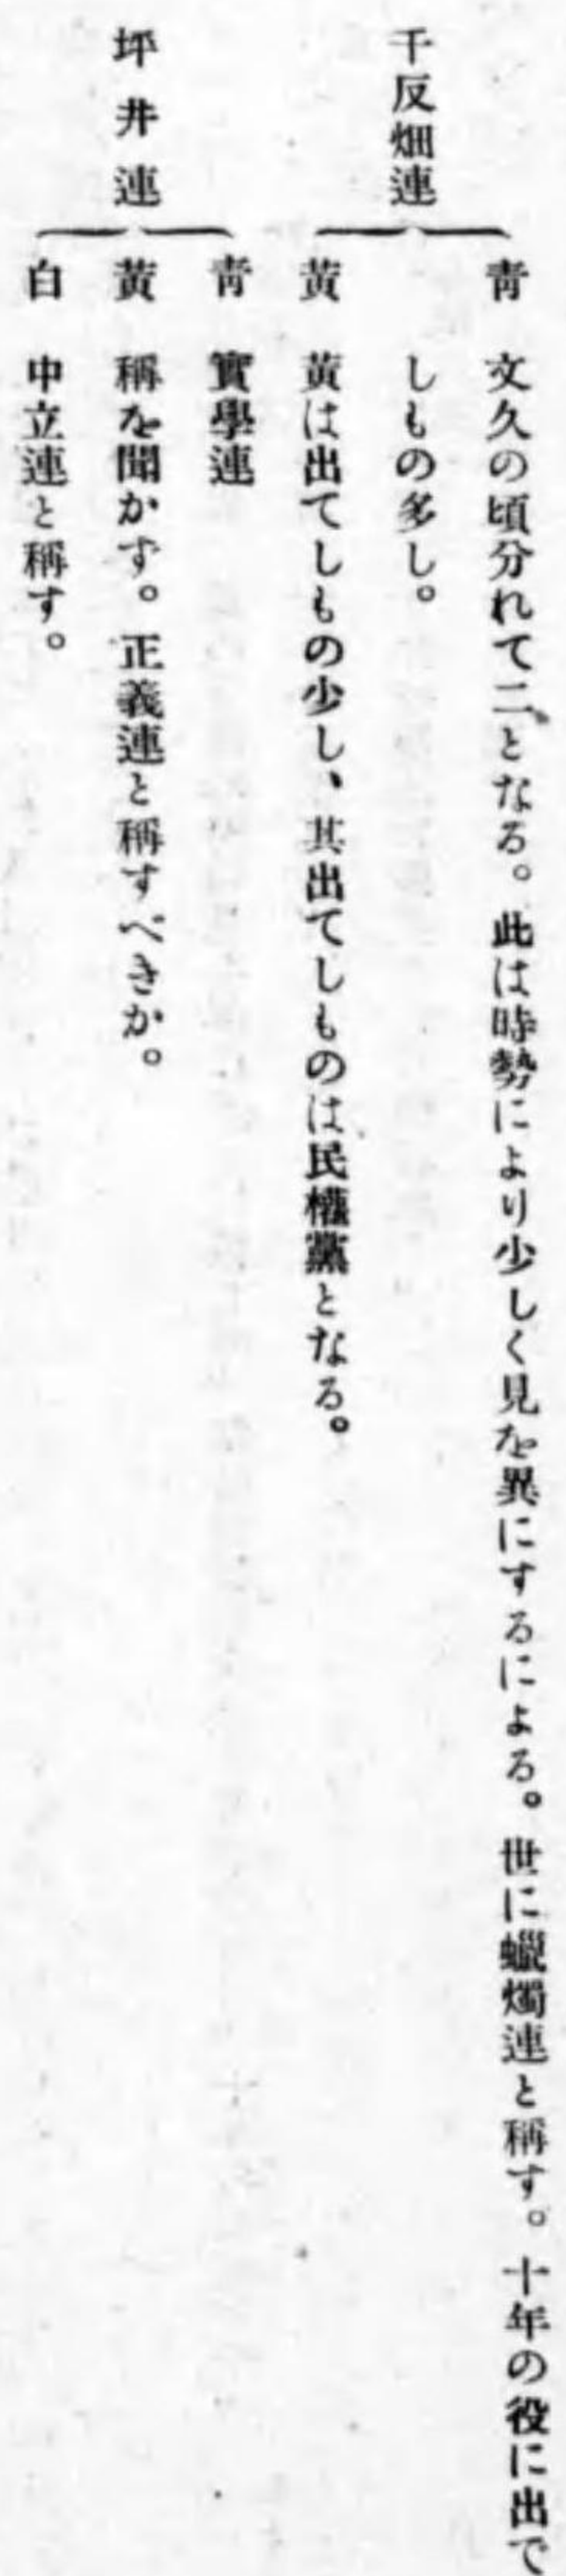 千反畑連
靑 文久の頃分れて二となる。此は時勢により少しく見を異にするによる。世に蠟燭連と稱す。十年の役に出で
しもの多し。
黃 黃は出てしもの少し、其出てしものは民權黨となる。
坪井連
靑 實學連
黃 稱を聞かす。正義連と稱すべきか。
白 中立連と稱す。